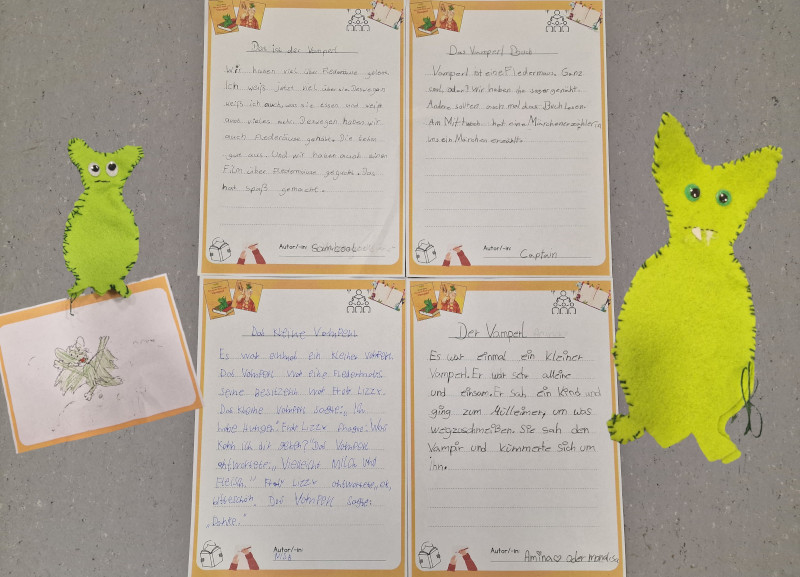 Das ist der Vamperl
Wir haben viel über Fledermäuse gelesen.
Ich weiß jetzt viel über sie. Deswegen
weiß ich auch, was sie essen und
und vieles mehr. Deswegen haben wir
auch Fledermäuse genäht. Die sehen
gut aus. Und wir haben auch einen
Film über Fledermäuse geguckt. Das
hat spaß gemacht.
Autor/-in:
Das Vamperl Buch
Vamperl ist eine Fledermaus. Ganz
cool, oder? Wir haben die sogar genäht.
Andere sollten auch mal das Buch lesen.
Am Mittwoch hat eine Märchenerzählerin
uns ein Märchen erzählt.
Autor/-in: Captain
Das kleine Vamperl
Es war einmal ein kleiner Vamperl.
Das Vamperl war eine Fledermaus
seine besitzerin war Frau Lizzy.
Das kleine Vamperl sagte: „Ich
habe Hunger." Frau Lizzy fragte: „Was
kann ich dir geben?" Das Vamperl
antwortete: „Vielleicht Milch und
Fleisch." Frau Lizzy antwortete: „ok,
bitteschön. Das Vamperl sagte:
„Danke."
Autor/-in:
Der Vamperl
Es war einmal ein kleiner
Vamperl. Er war sehr alleine
und einsam. Er sah ein Kind und
ging zum Mülleimer, um was
wegzuschmeißen. Sie sah den
Vampir und kümmerte sich um
ihn.
Autor/-in: Amina oder